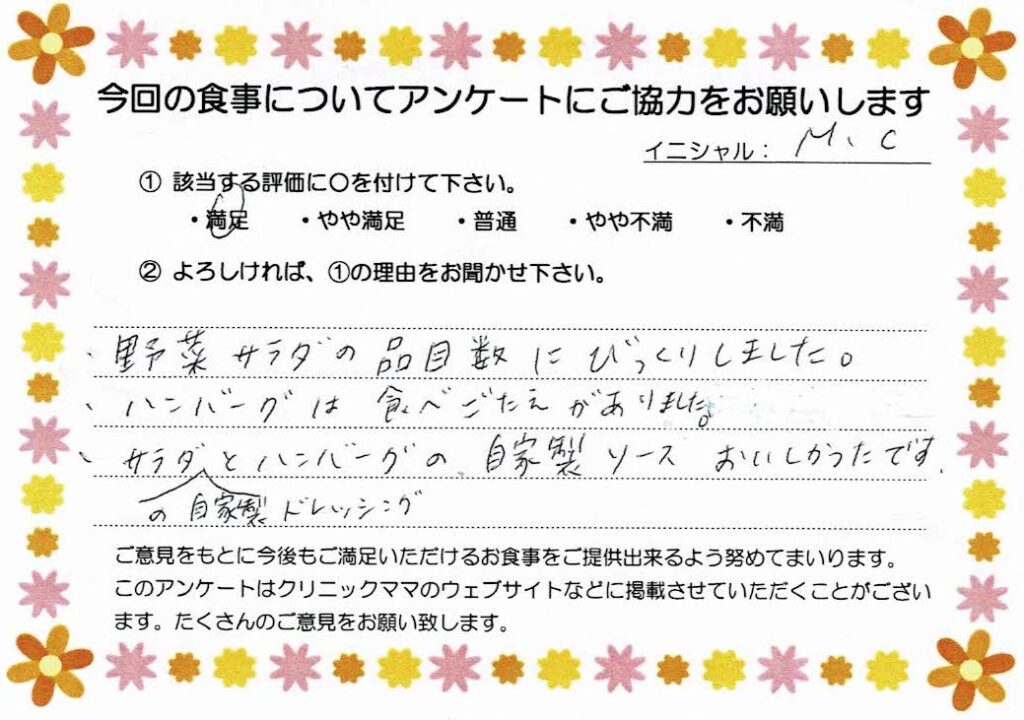 今回の食事についてアンケートにご協力をお願いします
イニシャル： M、C
① 該当する評価に〇を付けて下さい。
・満足 ・やや満足 ・普通 ・やや不満 ・不満
② よろしければ、①の理由をお聞かせ下さい。
、野菜サラダの品目数にびっくりしました。
、ハンバーグは食べごたえがありました。
、サラダとハンバーグの自家製ソースおいしかったです.
の自家製ドレッシング
ご意見をもとに今後もご満足いただけるお食事をご提供出来るよう努めてまいります。
このアンケートはクリニックママのウェブサイトなどに掲載させていただくことがござい
ます。たくさんのご意見をお願い致します。